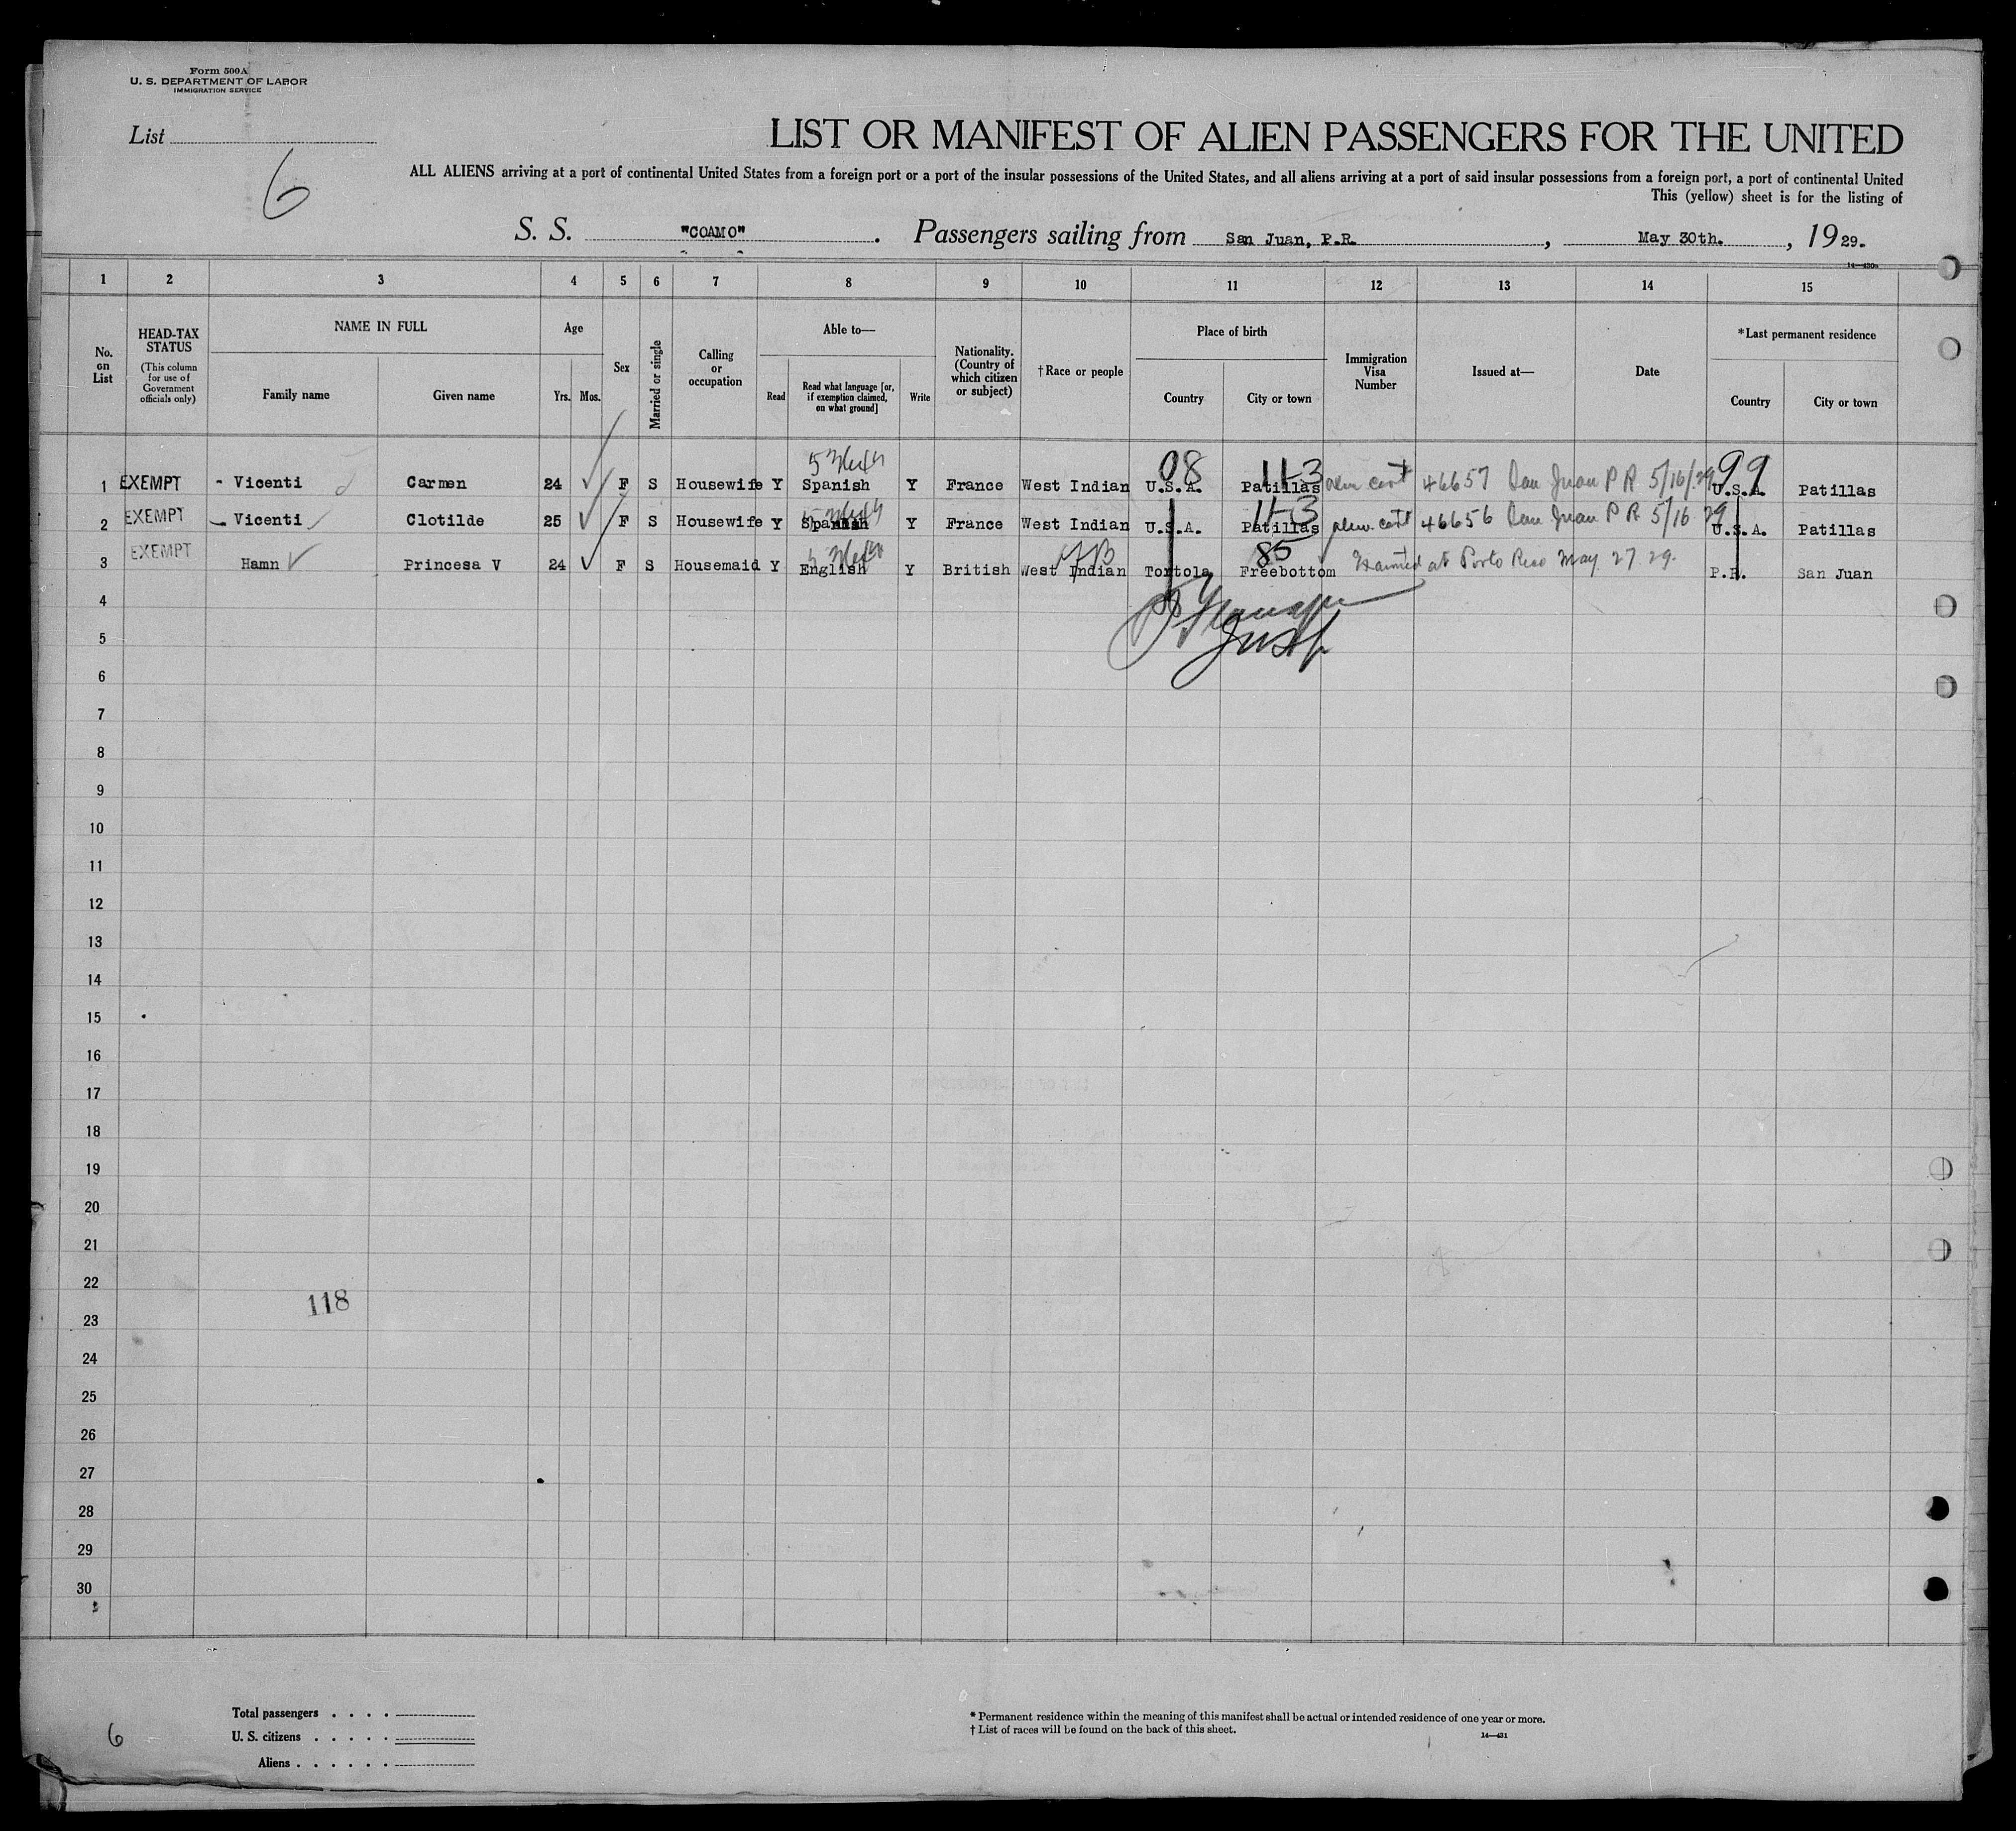 Form 500A
U. S. DEPARTMENT OF LABOR
IMMIGRATION SERVICE
List
6
LIST OR MANIFEST OF ALIEN PASSENGERS FOR THE UNITED
ALL ALIENS arriving at a port of continental United States from a foreign port or a port of the insular possessions of the United States, and all aliens arriving at a port of said insular possessions from a foreign port, a port of continental United
This (yellow) sheet is for the listing of
S. S. "COAMO" . Passengers sailing from San Juan, P.R. , May 30th. , 19 29.
14—430a
1 2 3 4 5 6 7 8 9 10 11 12 13 14 15
No. on List
HEAD-TAX STATUS
(This column for use of Government officials only)
NAME IN FULL
Family name
Given name
Age
Yrs. Mos.
Sex
Married or single
Calling or occupation
Able to—
Read
Read what language [or, if exemption claimed, on what ground]
Write
Nationality. (Country of which citizen or subject)
†Race or people
Place of birth
Country
City or town
Immigration Visa Number
Issued at—
Date
*Last permanent residence
Country
City or town
08 113 99
1 EXEMPT - Vicenti Carmen 24 F S Housewife Y Spanish Y France West Indian U.S.A. Patillas 46657 San Juan P R 5/16/29 U.S.A. Patillas
113
2 EXEMPT Vicenti Clotilde 25 F S Housewife Y Spanish Y France West Indian U.S.A. Patillas 46656 San Juan P R 5/16 29 U.S.A. Patillas
85
3 EXEMPT Hamn Princesa V 24 F S Housemaid Y English Y British West Indian Tortola Freebottom at Porto Rico May 27 29. P.R. San Juan
4
5
6
7
8
9
10
11
12
13
14
15
16
17
18
19
20
21
22
118
23
24
25
26
27
28
29
30
Total passengers . . . .
U. S. citizens . . . . .
Aliens . . . . . .
6
* Permanent residence within the meaning of this manifest shall be actual or intended residence of one year or more.
† List of races will be found on the back of this sheet.
14—431